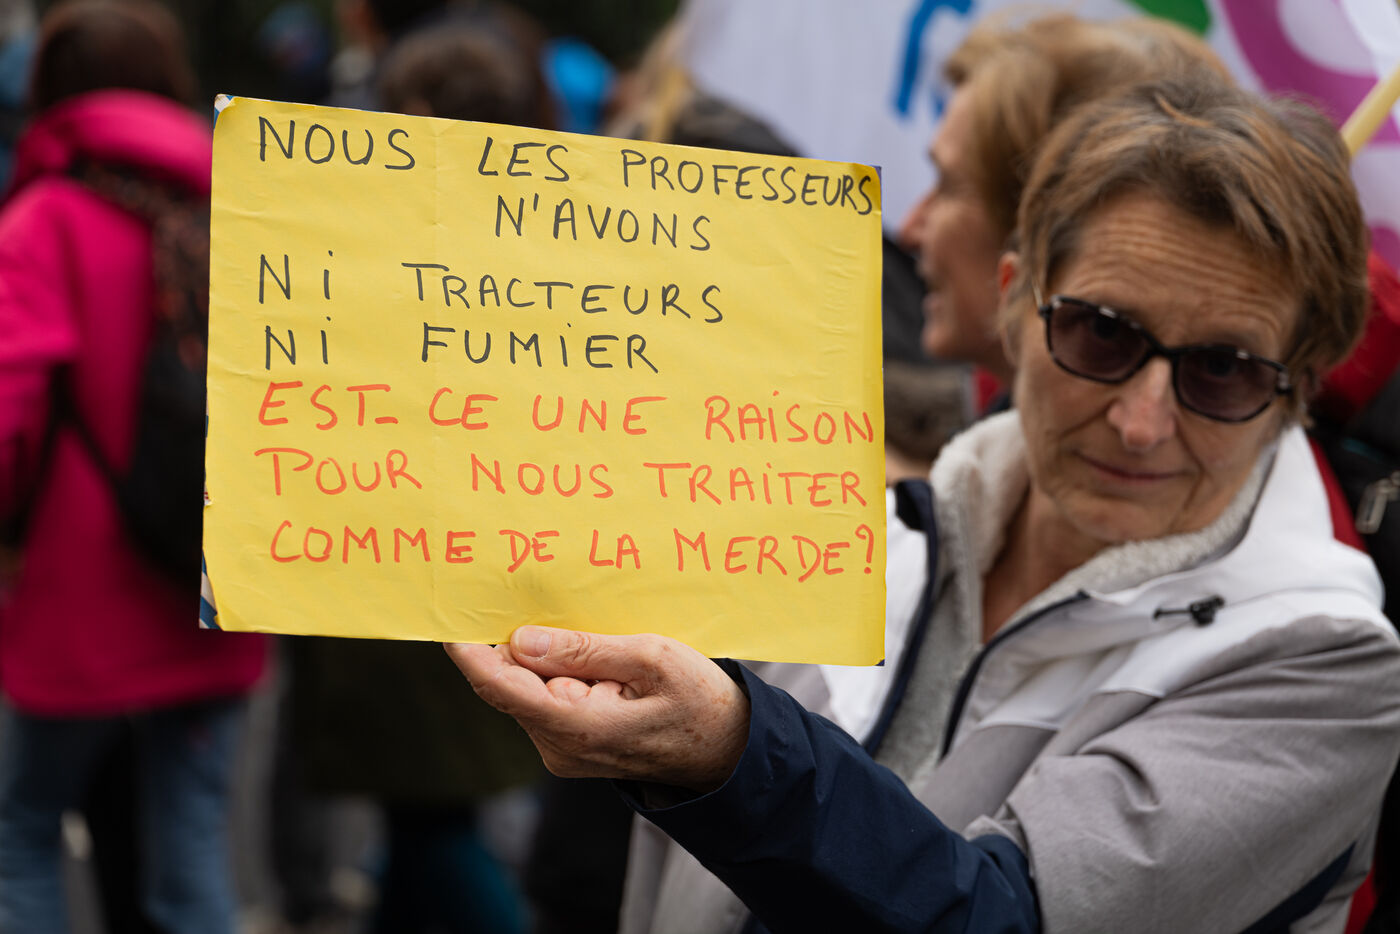 NOUS LES PROFESSEURS
N'AVONS
Ni TRACTEURS
Ni FUMiER
EST-CE UNE RAiSON
POUR NOUS TRAiTER
COMME DE LA MERDE?